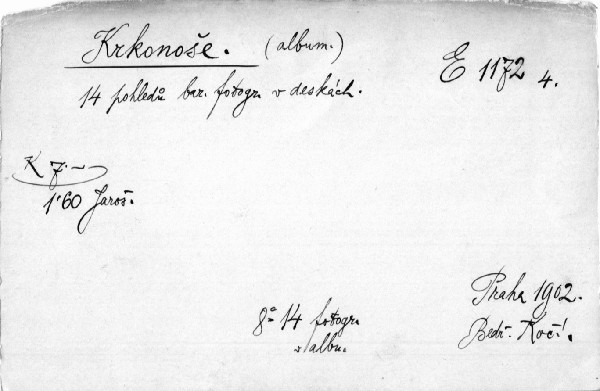 Krkonoše. (album.)
E 1172 4.
14 pohledů bar. fotogr. v deskách.
K 7.—
1·60 Jaroš.
Praha 1902.
8° 14 fotogr.
Bedř. Kočí.
v albu.